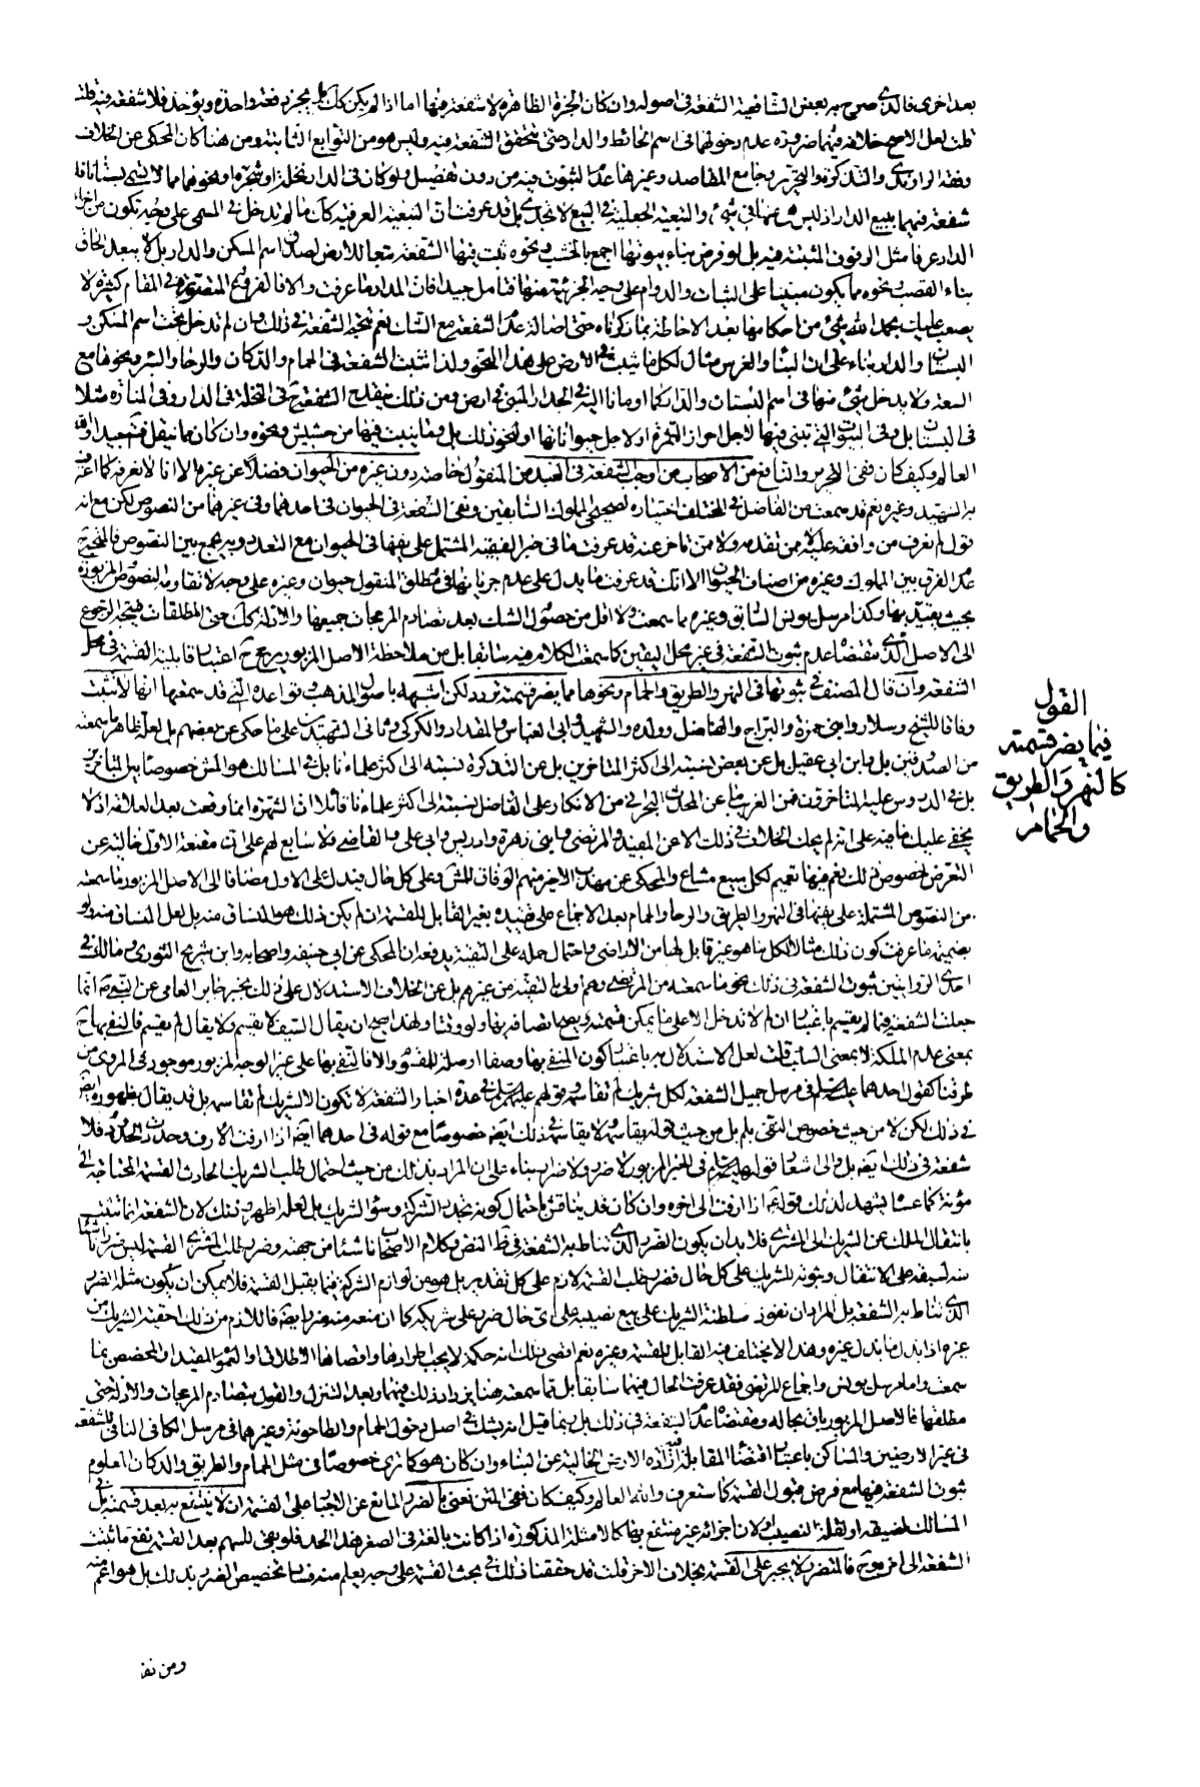 بعد اخرى فالذي صرح به بعض الشافعية الشفعة في اصوله وان كان الجزة الظاهرة لا شفعة فيها اما اذا لم يكن كك بل يجز دفعة واحدة ويؤخذ فلا شفعة فيه قلت
لعل الاصح خلافه فيهما ضرورة عدم دخولهما في اسم الحائط والدار حتى يتحقق الشفعة فيه وليس هو من التوابع الثابتة ومن هنا كان المحكي عن الخلاف
وفقه الراوندي والتذكرة والتحرير وجامع المقاصد وغيرها عدم الثبوت فيه من دون تفصيل ولو كان في الدار نخلة او شجرة او نحوهما مما لا تسمى بستانا فلا
شفعة فيهما ببيع الدار اذ ليس شيء منهما في شيء والتبعية الجعلية في البيع لا تجدي بل قد عرفت ان التبعية العرفية كك ما لم تدخل في المسمى على وجه تكون من اجزاء
الدار عرفا مثل الرفوف المثبتة فيه بل لو فرض بناء بيوتها اجمع بالخشب ونحوه ثبت فيها الشفعة تبعا للارض لصدق اسم المسكن والدار بل لا يبعد الحاق
بناء القصب ونحوه مما يكون مبنيا على الثبات والدوام على وجه الجزئية منها فتامل جيدا فان المدار ما عرفت والا فالفروع المتصورة في المقام كثيرة لا
يصعب عليك بحمد الله شيء من احكامها بعد الاحاطة بما ذكرناه حتى اصالة عدم الشفعة مع الشك نعم تتجه الشفعة في ذلك وان لم تدخل تحت اسم المسكن و
البستان والدار بناء على ان البناء والغرس مثال لكل ما يثبت في الارض على هذا النحو ولذا تثبت الشفعة في الحمام والدكان والرحا والبئر ونحوها مع
السعة ولا يدخل شيء منها في اسم البستان والدار كما اومانا اليه في الجدار المبني في ارض ومن ذلك ينقدح الشفعة ح في النخلة في الدار وفي المنارة مثلا
في البستان بل وفي البيوت التي تبنى فيها لاجل احراز الثمرة او لاجل حيواناتها او لنحو ذلك بل وما ينبت فيها من حشيش ونحوه وان كان مما ينقل فتامل جيدا والله
العالم وكيف كان ففي التحرير والنافع من الاصحاب من اوجب الشفعة في العبد من المنقول خاصة دون غيره من الحيوان فضلا عن غيره الا انا لا نعرفه كما اعترف
به الشهيد وغيره نعم قد سمعت من الفاضل في المختلف اختياره لصحيحي المملوك السابقين ونفي الشفعة في الحيوان في احدهما وفي غيرهما من النصوص لكن مع انه
قول لم نعرف من وافقه عليه لا ممن تقدمه ولا ممن تاخر عنه قد عرفت ما في خبر الفقيه المشتمل على نفيها في الحيوان مع التعدد وبه يجمع بين النصوص فالمتجه ح
عدم الفرق بين المملوك وغيره من اصناف الحيوان الا انك قد عرفت ما يدل على عدم جريانها في مطلق المنقول حيوان وغيره على وجه لا تقاومه النصوص المزبورة
بحيث يعتد بها وكذا مرسل يونس السابق وغيره مما سمعت ولا اقل من حصول الشك بعد تصادم المرجحات جميعها والادلة كك حتى المطلقات فيتجه الرجوع
الى الاصل الذي مقتضاه عدم ثبوت الشفعة في غير محل اليقين كما سمعت الكلام فيه سابقا بل من ملاحظة الاصل المزبور يرجح ح اعتبار قابلية القسمة في محل
الشفعة وان قال المصنف في ثبوتها في النهر والطريق والحمام ونحوها مما يضر قسمته تردد لكن اشبهه باصول المذهب وقواعده التي قد سمعتها انها لا تثبت
وفاقا للشيخ وسلار وابني حمزة والبراج والفاضل وولده والشهيد وابي العباس والمقداد والكركي وثاني الشهيدين على ما حكي عن بعضهم بل لعله ظاهر ما سمعته
من الصدوقين بل وابن ابي عقيل بل عن بعض نسبته الى اكثر المتاخرين بل عن التذكرة نسبته الى اكثر علمائنا بل في المسالك هو المش خصوصا بين المتاخرين
بل في الدروس عليه المتاخرون فمن الغريب ما عن المحدث البحراني من الانكار على الفاضل نسبته الى اكثر علمائنا قائلا ان الشهرة انما وقعت بعد العلامة اذ لا
يخفى عليك ما فيه على انه لم يحك الخلاف في ذلك الا عن المفيد والمرتضى وابني زهرة وادريس وابي علي والقاضي ولا سابع لهم على ان مقنعة الاول خالية عن
التعرض لخصوص ذلك نعم فيها تعميم لكل مبيع مشاع والمحكي عن مهذب الاخير منهم الوفاق للمش وعلى كل حال فيدل على الاول مضافا الى الاصل المزبور ما سمعته
من النصوص المشتملة على نفيها في النهر والطريق والرحا والحمام بعد الاجماع على تقييده بغير القابل للقسمة ان لم يكن ذلك هو المنساق منه بل لعل المنساق منه ولو
بضميمة ما عرفت كون ذلك مثالا لكل ما هو غير قابل لها من الاراضي واحتمال حمله على التقية يدفعه ان المحكي عن ابي حنيفة واصحابه وابن شريح الثوري ومالك في
احدى الروايتين ثبوت الشفعة في ذلك نحو ما سمعته من المرتضى وهم اولى بالتقية من غيرهم بل عن الخلاف الاستدلال على ذلك بخبر جابر العامي عن النبي ص انما
جعلت الشفعة فيما لم يقسم باعتبار ان لم لا تدخل الا على ما يمكن قسمته ويصح اتصافه بها ولو وقتا ولهذا صح ان يقال السيف لا يقسم ولا يقال لم يقسم فالنفي بها ح
بمعنى عدم الملكة لا بمعنى السلب
طرقنا كقول احدهما عليهما السلام في مرسل جميل الشفعة لكل شريك لم تقاسمه وقولهم عليهم السلام في عدة اخبار الشفعة لا تكون الا لشريك لم تقاسمه بل قد يقال بظهوره ايضا
في ذلك لكن لا من حيث خصوص النفي بلم بل من حيث قوله يقاسم ولا يقاسم في ذلك ايضا خصوصا مع قوله في احدهما ايضا اذا ارفت الارف وحدت الحدود فلا
شفعة في ذلك ايضا بل والى اشعار قوله عليه السلام في الخبر المزبور لا ضرر ولا ضرار بناء على ان المراد بذلك من حيث احتمال طلب الشريك الحادث القسمة المحتاجة الى
مؤنة كما عساه يشهد لذلك قوله ثم اذا ارفت الى اخره وان كان قد يناقش باحتمال كونه تجدد الشركة وسوء الشريك بل لعله اظهر من ذلك لان الشفعة انما تثبت
بانتقال الملك عن الشريك الى المشتري فلا بد ان يكون الضرر الذي تناط به الشفعة في ظ النص وكلام الاصحاب ناشئا من جهته وضرر طلب المشتري القسمة ليس ضررا ناشئا
منه لسبقه على الانتقال وثبوته للشريك على كل حال فضرر طلب القسمة لازم على كل تقدير بل هو من لوازم الشركة فيما يقبل القسمة فلا يمكن ان يكون مثله الضرر
الذي تناط به الشفعة بل المراد ان نفوذ سلطنة الشريك على بيع نصيبه على اي حال ضرر على شريكه كما ان منعه منه ضرر ايضا فاللازم من ذلك احقية الشريك من
غيره اذا بذل ما بذل غيره وهذا لا يختلف فيه القابل للقسمة وغيره نعم اقصى ذلك انه حكمة لا يجب اطرادها واقصاها الاطلاق والعموم المقيد او المخصص بما
سمعت واما مرسل يونس واجماع المرتضى فقد عرفت الحال فيهما سابقا بل ما سمعته هنا يزداد ذلك فيهما وبعد التنزل والقول بتصادم المرجحات والادلة حتى
مطلقها فالاصل المزبور باق بحاله ومقتضاه عدم الشفعة في ذلك بل ربما قيل انه يشك في اصل دخول الحمام والطاحونة وغيرهما في مرسل الكافي النافي للشفعة
في غير الارضين والمساكن باعتبار اقتضاء المقابلة ارادة الارض الخالية عن البناء وان كان هو كما ترى خصوصا في مثل الحمام والطريق والدكان المعلوم
ثبوت الشفعة فيها مع فرض قبول القسمة كما ستعرف والله العالم وكيف كان ففي المتن نعني بالضرر المانع عن الاجبار على القسمة ان لا ينتفع به بعد قسمته بل في
المسالك لضيقه او لقلة النصيب او لان اجزائه غير منتفع بها كالامثلة المذكورة اذا كانت بالغة في الصغر هذا الحد فلو بقي للسهم بعد القسمة نفع ما ثبتت
الشفعة الى اخره وح فالمتضرر لا يجبر على القسمة بخلاف الاخر قلت قد حققنا ذلك في بحث القسمة على وجه يعلم منه فساد تخصيص الضرر بذلك بل هو اعم منه
القول
فيما يضر قسمته
كالنهر والطريق
والحمام
ومن نفـ